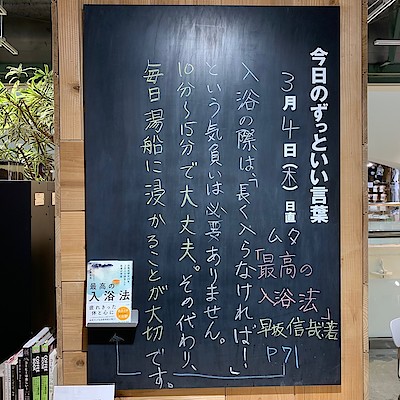 今日のずっといい言葉
3月4日(木)日直
ムタ
「最高の
入浴法」
早坂信哉著
P71
入浴の際は、“長く入らなければ!”
という気負いは必要ありません。
10分〜15分で大丈夫。その代わり、
毎日湯船に浸かることが大切です。
最高の
入浴法
疲れきった
体と心に